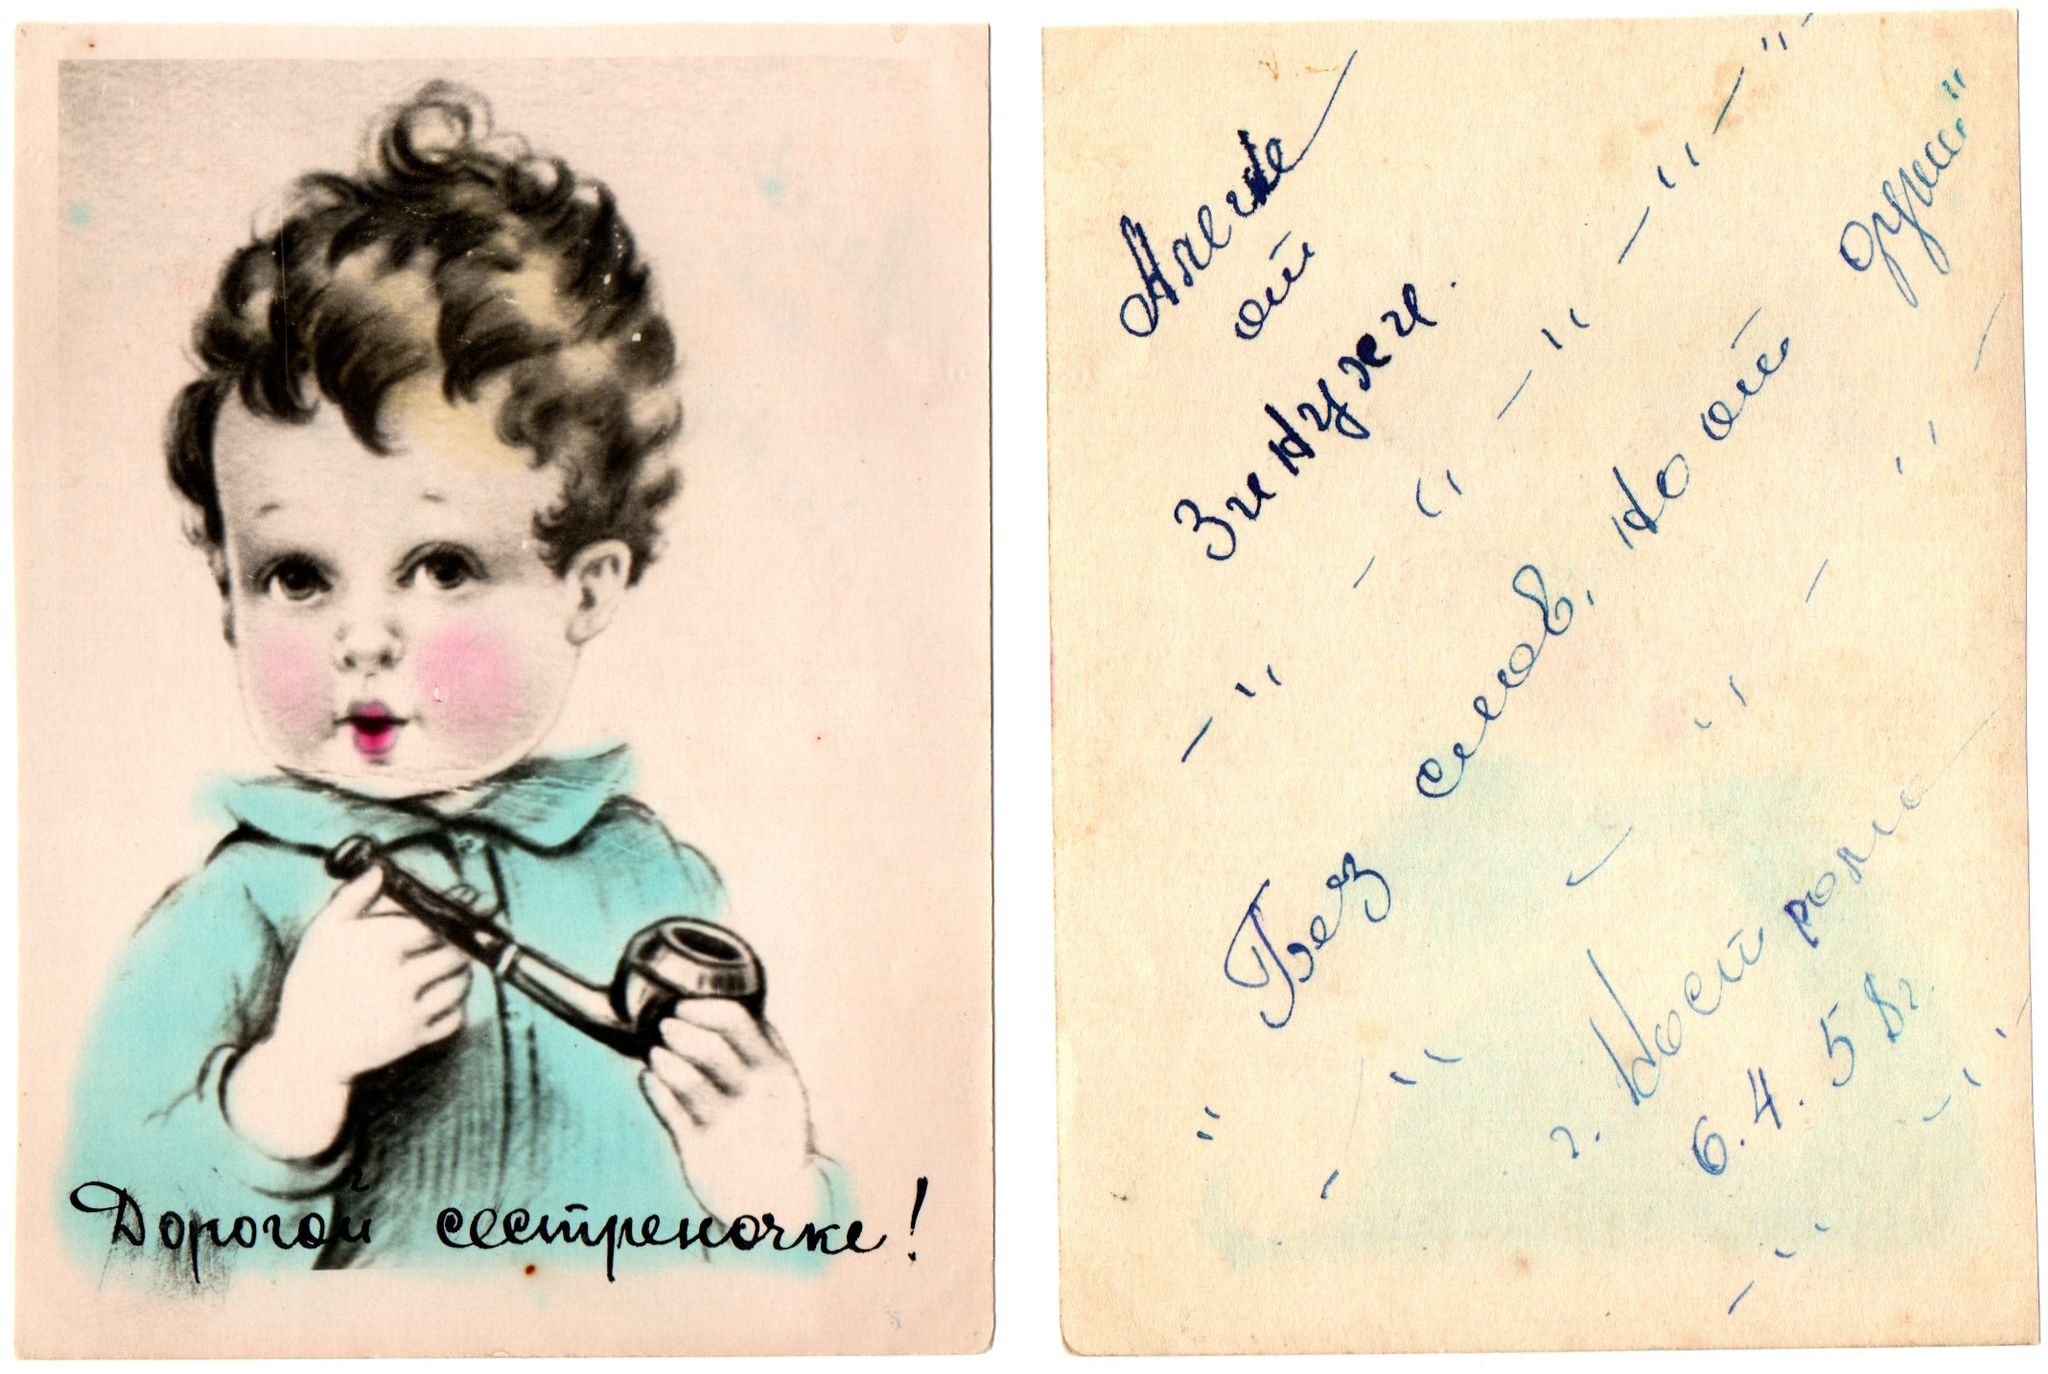 Дорогой сестреночке!
от
Зинухи.
Без слов, но от души"
г. Кострома
6.4.58г.